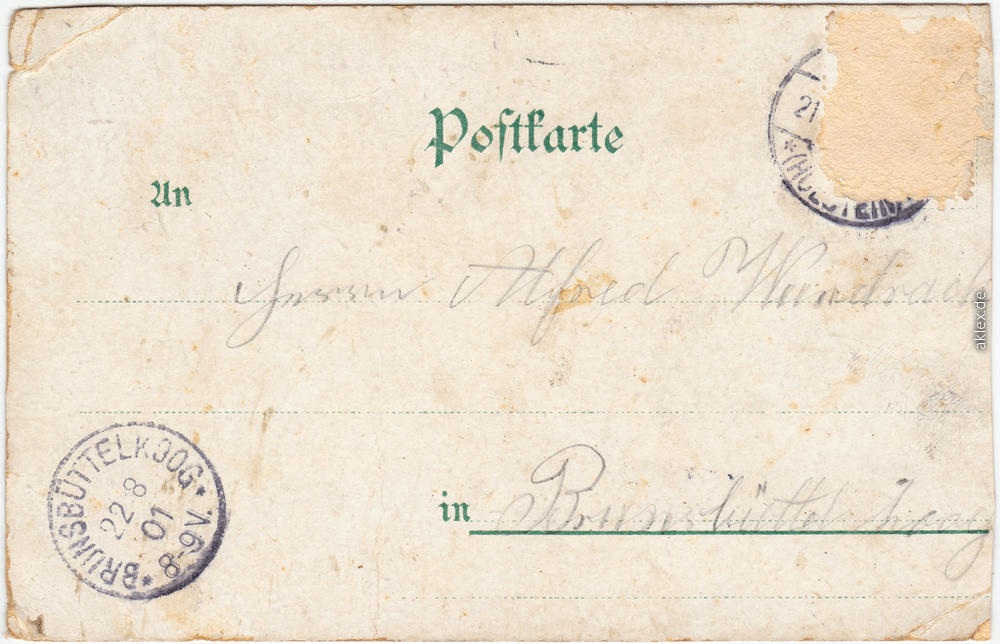 Postkarte
21
*(HOLSTEIN)
An
Herrn Alfred
in Brunsbüttel Koog
*BRUNSBÜTTELKOOG*
22.8
01
8-9V.
aklex.de